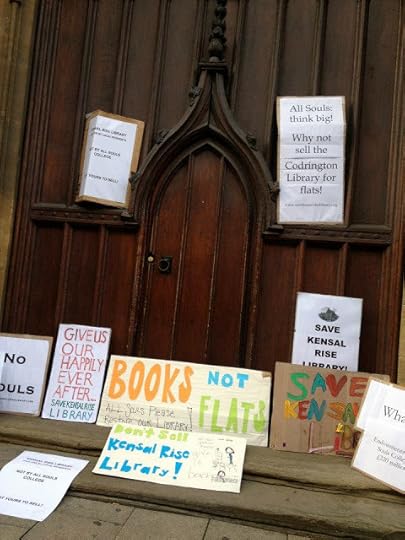 SEL RISE LIBRARY
NOT BY ALL SOULS
COLLEGE
YOURS TO SELL!
All Souls:
think big!
Why not
sell the
Codrington
Library for
flats!
No
OULS
GIVE US
OUR
HAPPILY
EVER
AFTER...
SAVE KENSAL RISE
LIBRARY
BOOKS NOT
FLATS
ALL SOULS Please
OUR LIBRARY
Don't Sell
Kensal Rise
Library!
SAVE
KENSAL
RISE
LIBRARY!
SAVE
KENSAL
Wha
Endowment
Souls Colle
£200 million
KENSAL RISE LIBRARY
NOT BY ALL SOULS
COLLEGE
YOURS TO SELL!